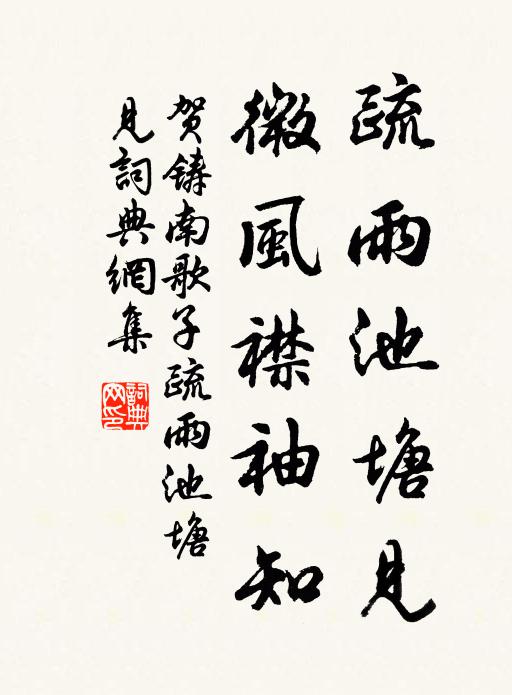 疏雨池塘見
微風襟袖知
賀鑄南歌子疏雨池塘
見詞典網集
詞典
网印